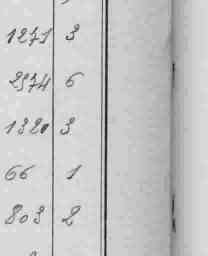 1271 3
2574 6
1320 3
66 1
803 2